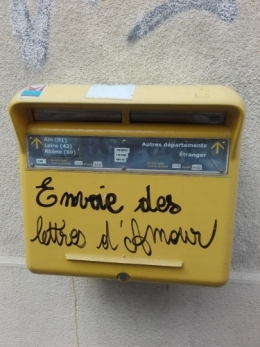 Ain (01)
Loire (42)
Rhône (69)
Autres départements
Étranger
Envoie des
lettres d'Amour